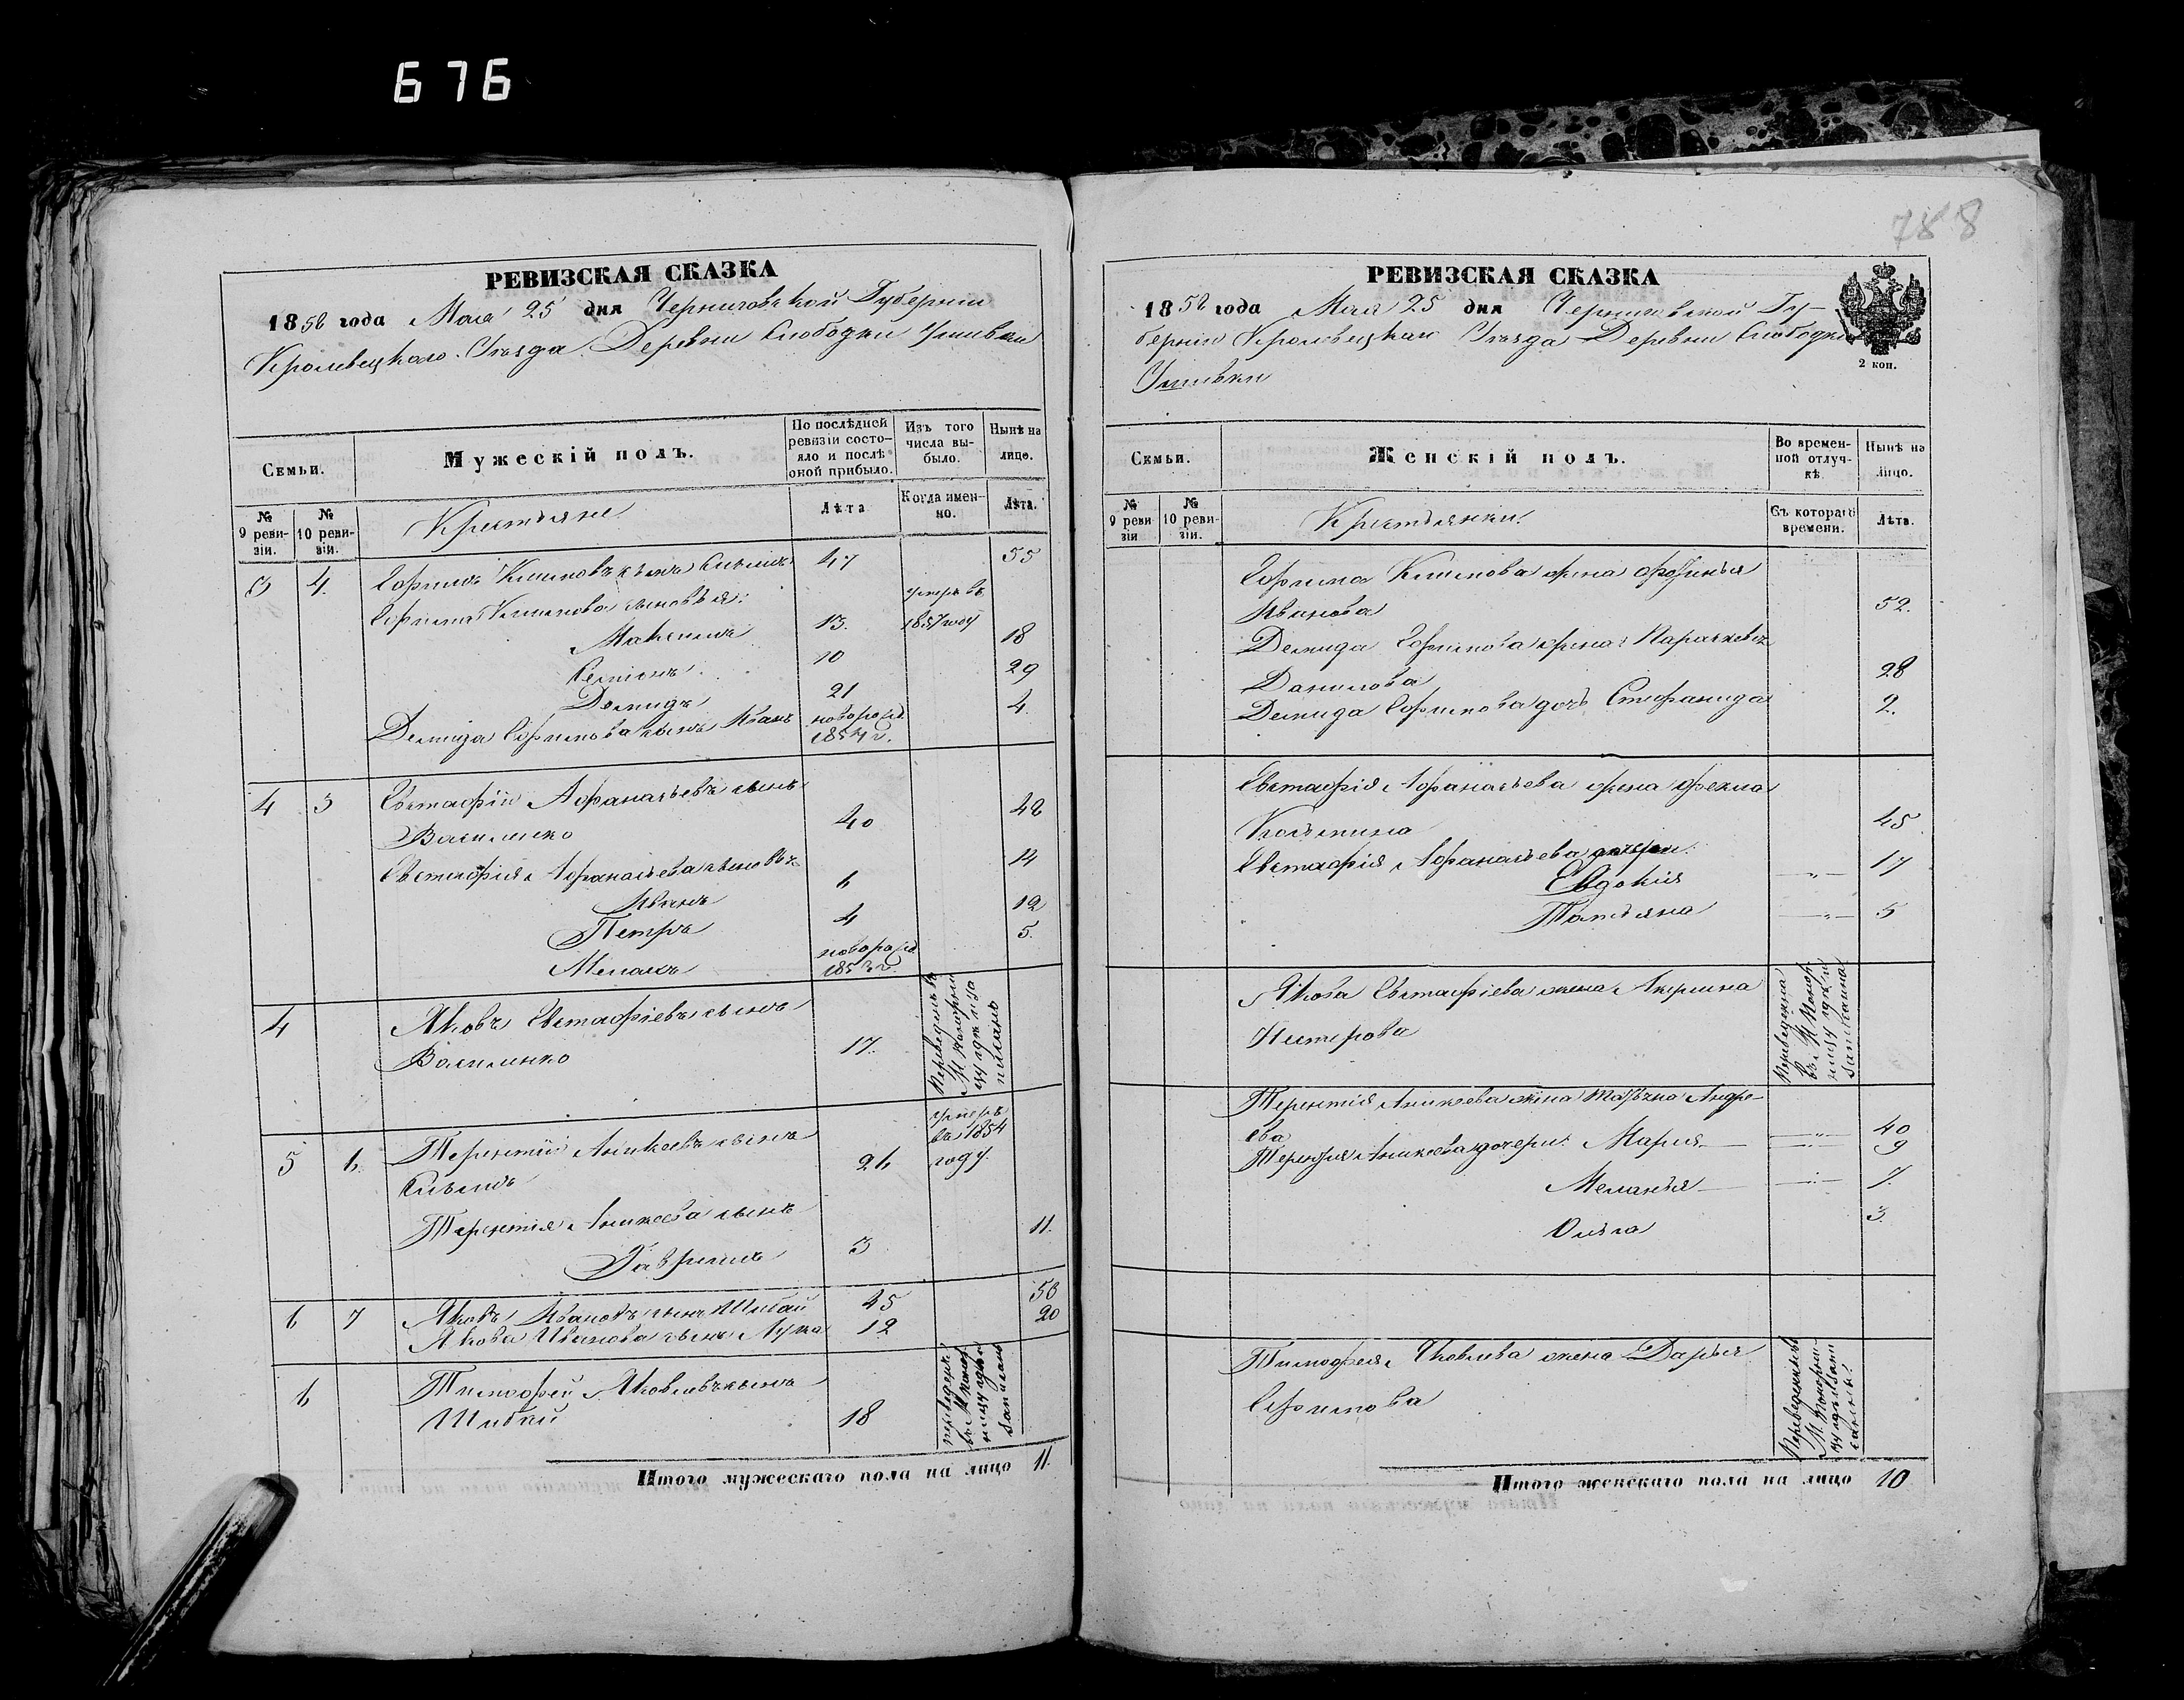 676
788
РЕВИЗСКАЯ СКАЗКА
1858 года Мая 25 дня Черниговской Губернии
Кролевецкаго Уѣзда Деревни Слободки
Семьи.
Мужескій полъ.
По послѣдней ревизіи состо-
яло и послѣ
оной прибыло.
Изъ того
числа вы-
было.
Нынѣ на
лицо.
№
9 реви-
зіи.
№
10 реви-
зіи.
Крестьяне
Лѣта
Когда имен-
но.
Лѣта.
3 4. Ефимъ сынъ 47 55
Ефима сыновья:
умеръ въ
1857 году
Максимъ 13. 18
Семіонъ 10 29
Демидъ 21 4.
Демида Ефимова сынъ Иванъ новорожд
1854 г.
4 5 Евстафій Афанасьевъ сынъ
Василенко 40 48
Евстафія Афанасьева сыновья
Иванъ 6 14
Петръ 4 12
новорожд 5.
1853 г.
4 Яковъ Евстафіевъ сынъ
Василенко 17.
Переведенъ въ
5 6. Терентій Аникеевъ сынъ 26
умеръ
въ 1854
году.
Терентія Аникеева сынъ
Гавріилъ 3 11.
6 7 Яковъ Ивановъ сынъ Шибай 45 53
Якова Иванова сынъ Лука 12 20
6 Тимофей Яковлевъ сынъ
Шибай 18
переведенъ
Итого мужескаго пола на лицо 11.
РЕВИЗСКАЯ СКАЗКА
1858 года Мая 25 дня Черниговской Гу-
берніи Кролевецкаго Уѣзда Деревни Слободки
2 коп.
Семьи.
Женскій полъ.
Во времен-
ной отлуч-
кѣ.
Нынѣ на
лицо.
№
9 реви-
зіи
№
10 реви-
зіи.
Крестьянки
Съ котораго
времени.
Лѣта.
Ефима жена
Иванова 52.
Демида Ефимова жена Параскевія
Данилова 28
Демида Ефимова дочь Стефанида 2.
Евстафія Афанасьева жена Фекла
Козьмина 45
Евстафія Афанасьева дочери:
Евдокія 17
Татьяна 5
Якова Евстафіева жена Акулина
Нестерова
Переведена
Терентія Аникеева жена Андре-
ева 40
Терентія Аникеева дочери: Марія 9
Меланія 7.
3.
Тимофея Яковлева жена Дарья
Ефимова
Переведена
Итого женскаго пола на лицо 10